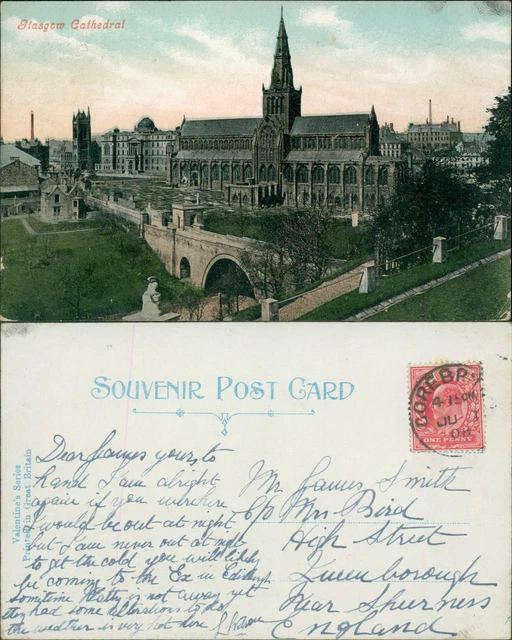 Glasgow Cathedral
SOUVENIR POST CARD
GOREBR
4.15PM
JU
08
ONE PENNY
Valentine's Series
Printed in Great Britain
Dear James yours to
hand I am alright
again if you were here
I would be out at night
but I am never out at night
to get the cold you will likely
be coming to the Ex in Edinburgh
sometime Hatty is not away yet
they had some alterations to do
the weather is very hot here
Mr James Smith
C/o Mrs Bird
High Street
Queenborough
Near Sheerness
England